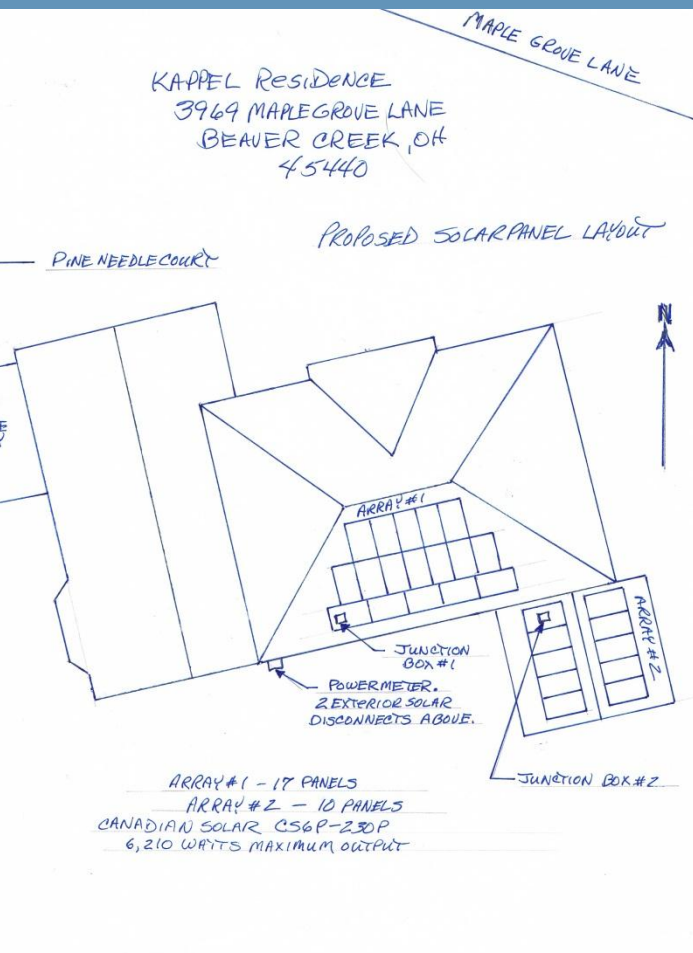 MAPLE GROVE LANE
KAPPEL RESIDENCE
3969 MAPLEGROVE LANE
BEAVER CREEK, OH
45440
PROPOSED SOLAR PANEL LAYOUT
PINE NEEDLE COURT
N
ARRAY #1
ARRAY #2
JUNCTION
BOX #1
POWERMETER.
2 EXTERIOR SOLAR
DISCONNECTS ABOVE.
JUNCTION BOX #2
ARRAY #1 - 17 PANELS
ARRAY #2 - 10 PANELS
CANADIAN SOLAR CS6P-230P
6,210 WATTS MAXIMUM OUTPUT